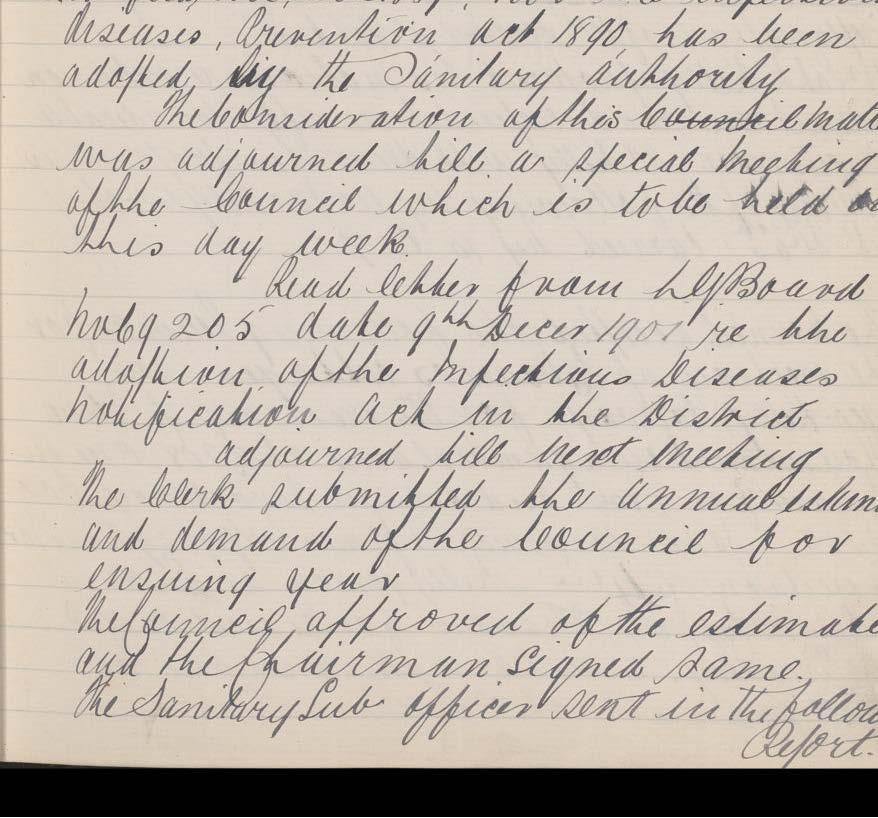 diseases, Prevention act 1890 has been
adopted by the Sanitary authority
The Consideration of this Council matt
was adjourned till a special Meeting
of the Council which is to be held on
this day week.
Read letter from LGBoard
No 69205 date 9th Decer 1901 re the
adoption of the Infectious Diseases
Notification Act in the District
adjourned till next Meeting
The Clerk submitted the annual estim
and demand of the Council for
ensuing year
The Council approved of the estimate
and the Chairman Signed same.
The Sanitary Sub officer sent in the follow
Report.